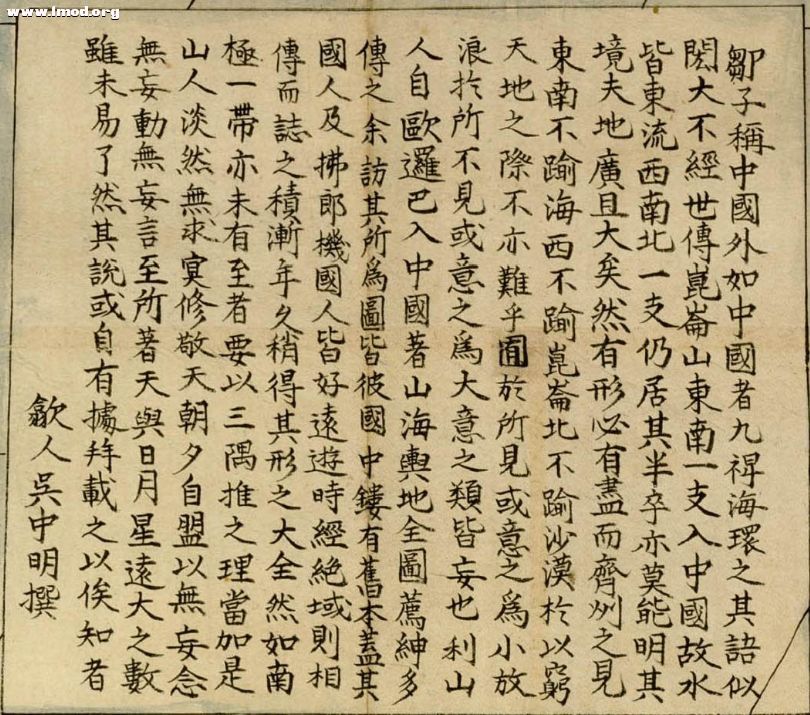 www.lmod.org
鄒子稱中國外如中國者九裨海環之其語似
閎大不經世傳崑崙山東南一支入中國故水
皆東流西南北一支仍居其半卒亦莫能明其
境夫地廣且大矣然有形必有盡而齊州之見
東南不踰海西不踰崑崙北不踰沙漠於以窮
天地之際不亦難乎囿於所見或意之為小放
浪於所不見或意之為大意之類皆妄也利山
人自歐邏巴入中國著山海輿地全圖薦紳多
傳之余訪其所為圖皆彼國中鏤有舊本蓋其
國人及拂郎機國人皆好遠遊時經絶域則相
傳而誌之積漸年久稍得其形之大全然如南
極一帶亦未有至者要以三隅推之理當加是
山人淡然無求冥修敬天朝夕自盟以無妄念
無妄動無妄言至所著天與日月星遠大之數
雖未易了然其說或自有據并載之以俟知者
歙人吳中明撰